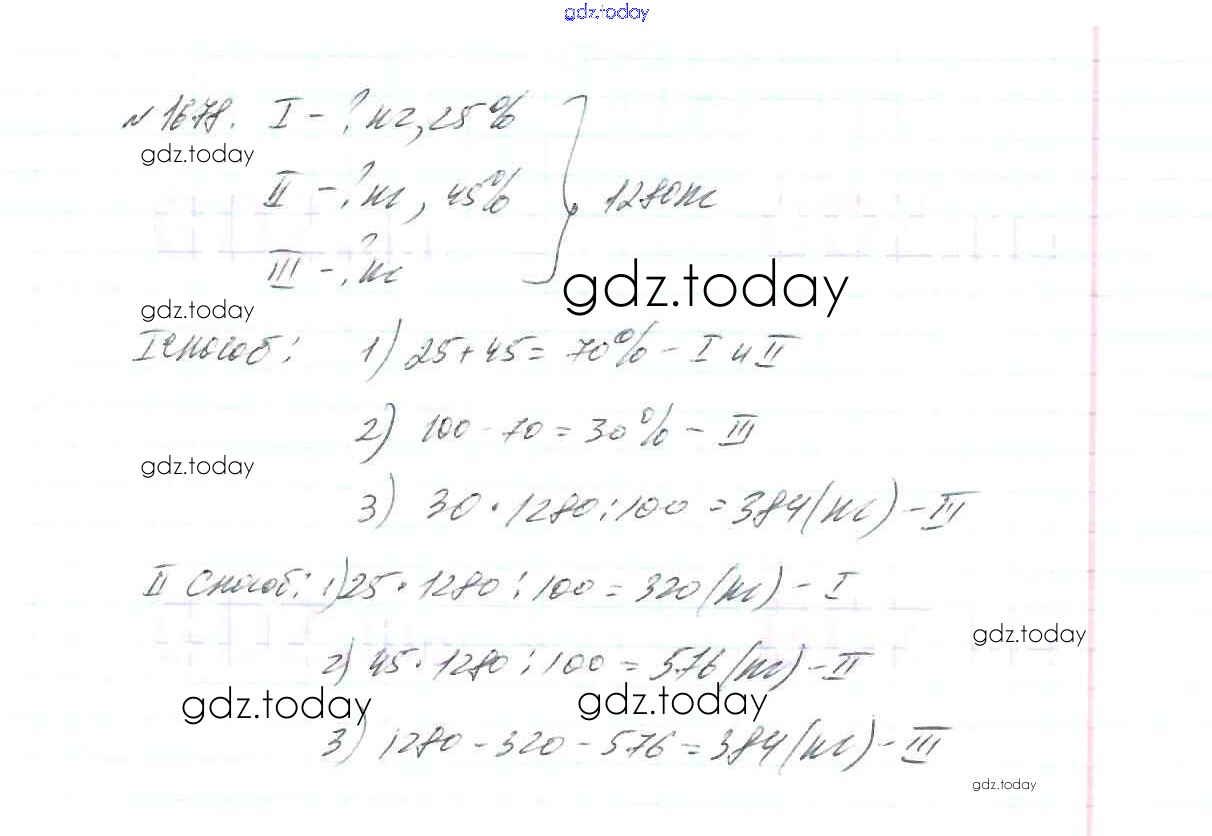 gdz.today
№ 1678. I - ? кг, 25%
gdz.today
II - ? кг, 45%
1280 кг
III - ? кг
gdz.today
gdz.today
I способ: 1) 25 + 45 = 70% - I и II
2) 100 - 70 = 30% - III
gdz.today
3) 30 · 1280 : 100 = 384 (кг) - III
II способ: 1) 25 · 1280 : 100 = 320 (кг) - I
gdz.today
2) 45 · 1280 : 100 = 576 (кг) - II
gdz.today gdz.today
3) 1280 - 320 - 576 = 384 (кг) - III
gdz.today